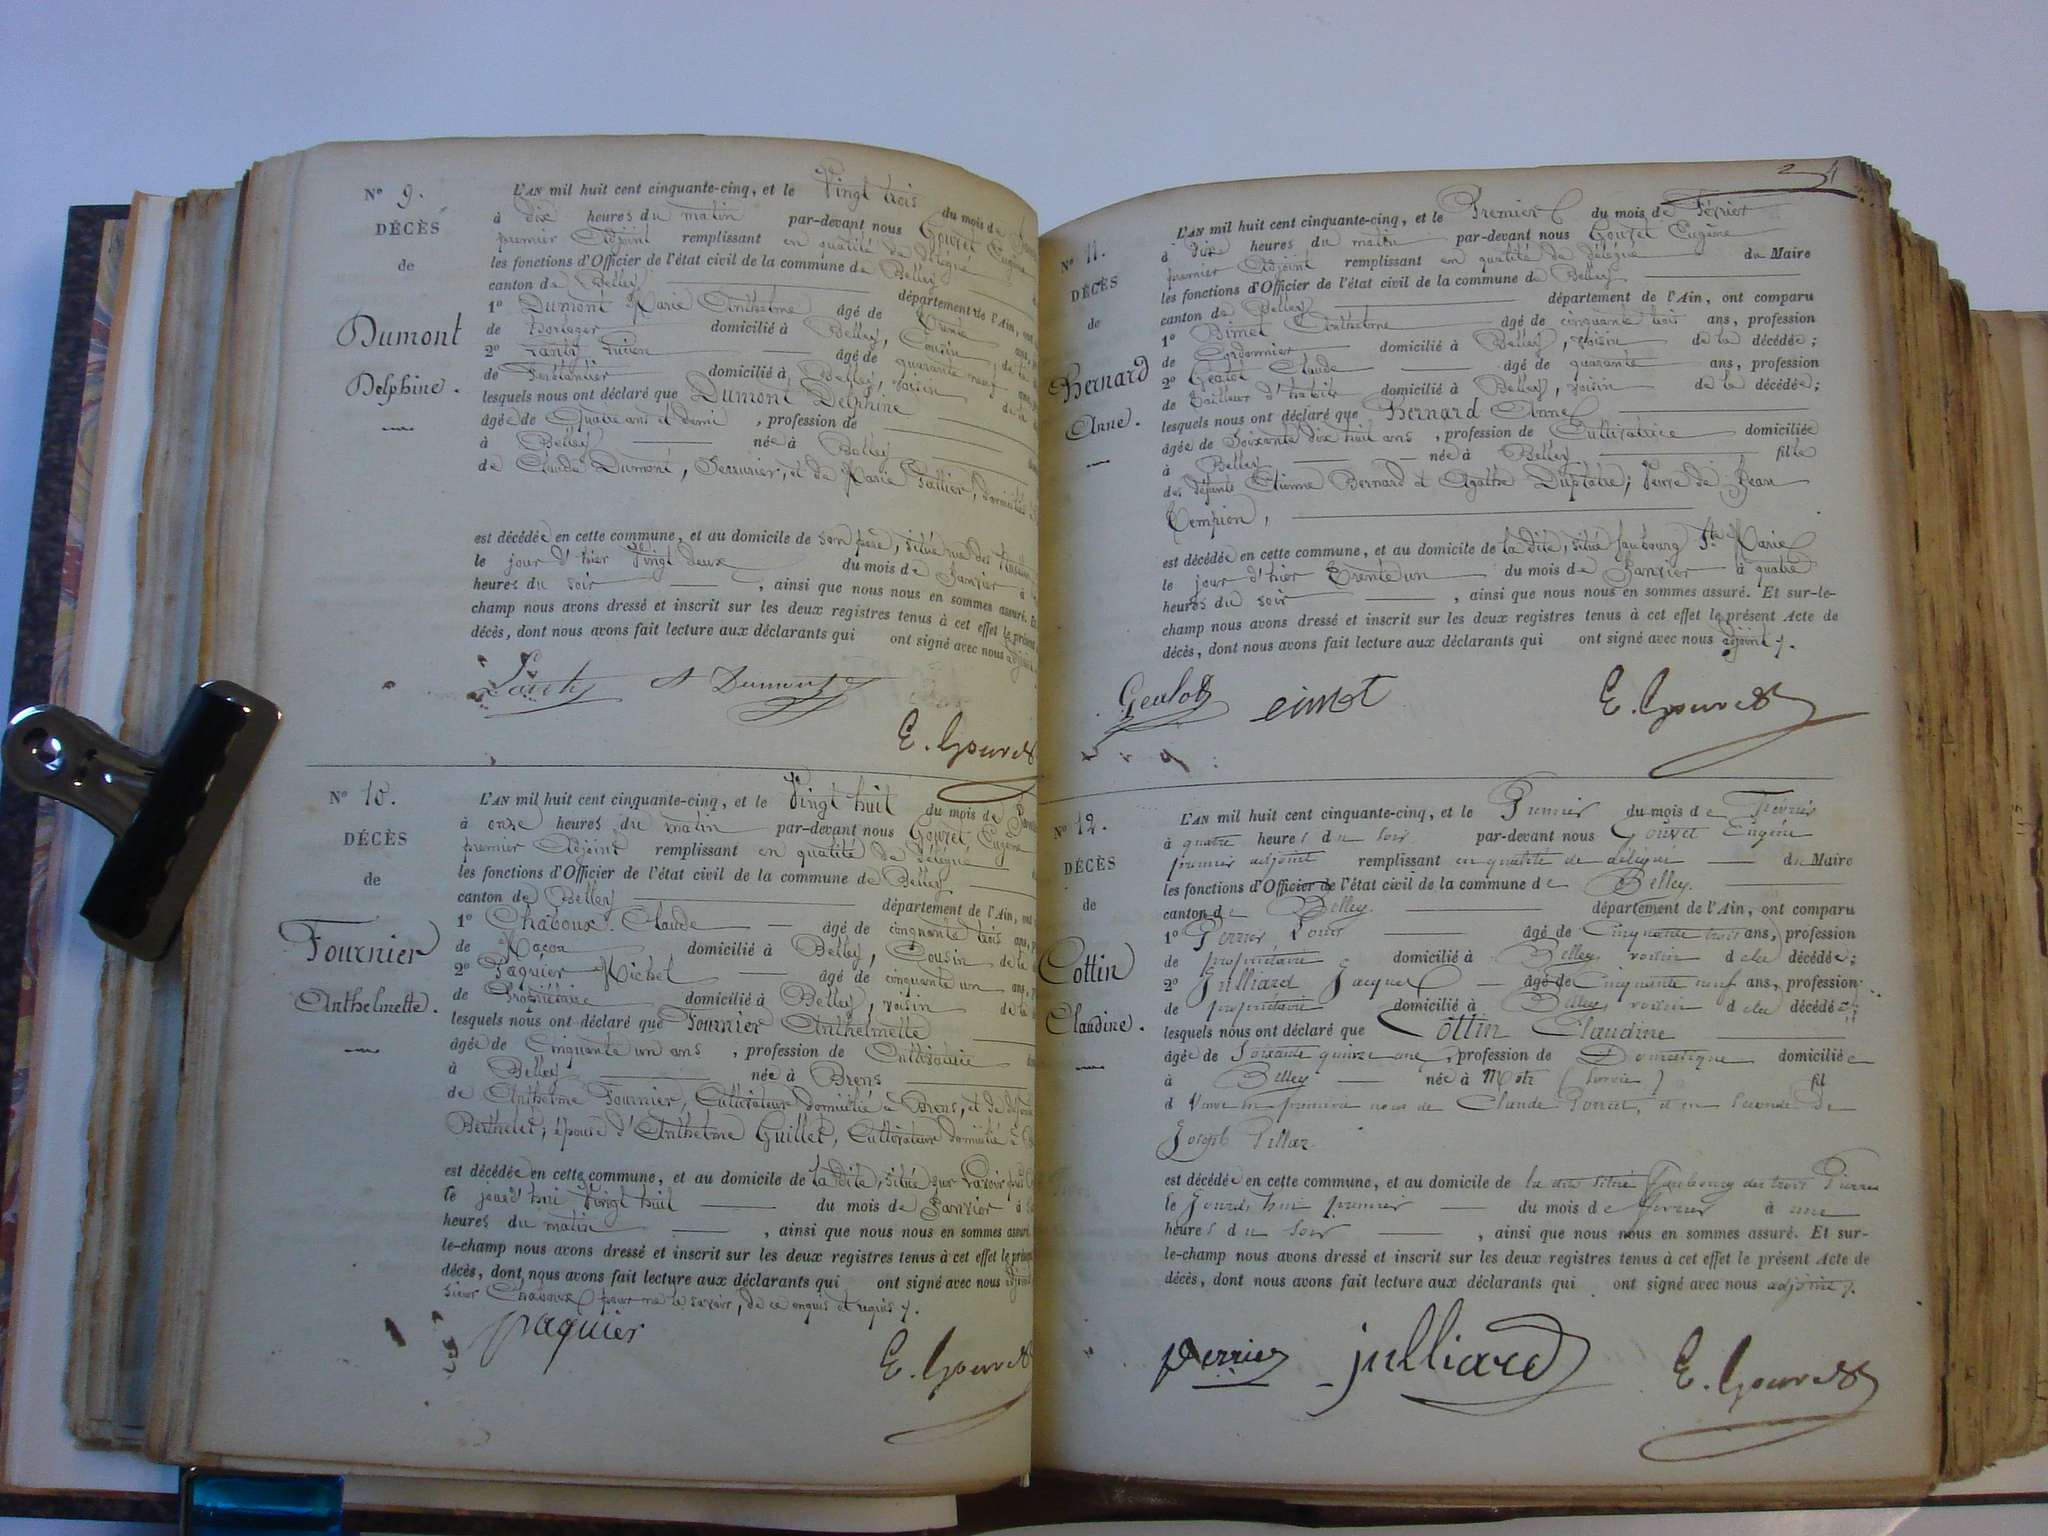 N° 9.
DÉCÈS
de
Dumont
Delphine.
L'AN mil huit cent cinquante-cinq, et le Vingt trois du mois de
à dix heures du matin par-devant nous Gouvet Eugène
premier Adjoint remplissant en qualité de délégué
les fonctions d'Officier de l'état civil de la commune de Belley
canton de Belley département de l'Ain, ont
1° Dumont Marie Anthelme âgé de Trente
de horloger domicilié à Belley, Cousin de la
2° Lucien âgé de quarante neuf
de Ferblantier domicilié à Belley, voisin de la
lesquels nous ont déclaré que Dumont Delphine
âgée de Quatre ans et demi, profession de
à Belley née à Belley
de Claude Dumont, Serrurier, et de Marie domiciliés
est décédée en cette commune, et au domicile de son père, situé rue des
le jour d'hier Vingt deux du mois de Janvier à
heures du soir, ainsi que nous nous en sommes assuré. Et
champ nous avons dressé et inscrit sur les deux registres tenus à cet effet le présent
décès, dont nous avons fait lecture aux déclarants qui ont signé avec nous adjoint
Dumont
E. Gouvet
N° 10.
DÉCÈS
de
Fournier
Anthelmette.
L'AN mil huit cent cinquante-cinq, et le Vingt huit du mois de
à onze heures du matin par-devant nous Gouvet Eugène
premier Adjoint remplissant en qualité de délégué
les fonctions d'Officier de l'état civil de la commune de Belley
canton de Belley département de l'Ain, ont
1° Chaboux Claude âgé de cinquante trois ans,
de Maçon domicilié à Belley, Cousin de la
2° Paquier Michel âgé de cinquante un ans,
de Propriétaire domicilié à Belley, voisin de la
lesquels nous ont déclaré que Fournier Anthelmette
âgée de Cinquante un ans, profession de Cultivatrice
à Belley née à Brens
de Anthelme Fournier, Cultivateur domicilié à Brens, et de défunte
Berthelet; épouse d'Anthelme Guillet, Cultivateur domicilié à
est décédée en cette commune, et au domicile de la dite, situé
le jourd'hui Vingt huit du mois de Janvier à
heures du matin, ainsi que nous nous en sommes assuré.
le-champ nous avons dressé et inscrit sur les deux registres tenus à cet effet le présent
décès, dont nous avons fait lecture aux déclarants qui ont signé avec nous adjoint
sieur Chaboux pour ne le savoir, de ce enquis et requis.
paquier
E. Gouvet
N° 11.
DÉCÈS
de
Bernard
Anne.
L'AN mil huit cent cinquante-cinq, et le Premier du mois de Février
à dix heures du matin par-devant nous Gouvet Eugène
premier Adjoint remplissant en qualité de délégué du Maire
les fonctions d'Officier de l'état civil de la commune de Belley
canton de Belley département de l'Ain, ont comparu
1° Bimet Anthelme âgé de cinquante trois ans, profession
de Cordonnier domicilié à Belley, voisin de la décédée;
2° Geolot Claude âgé de quarante ans, profession
de tailleur d'habits domicilié à Belley, voisin de la décédée;
lesquels nous ont déclaré que Bernard Anne
âgée de Soixante dix huit ans, profession de Cultivatrice domiciliée
à Belley née à Belley fille
des défunts Etienne Bernard et Agathe Duplatre; Veuve de Jean
Tempion,
est décédée en cette commune, et au domicile de la dite, situé faubourg Ste Marie
le jour d'hier Trente un du mois de Janvier à quatre
heures du soir, ainsi que nous nous en sommes assuré. Et sur-le-
champ nous avons dressé et inscrit sur les deux registres tenus à cet effet le présent Acte de
décès, dont nous avons fait lecture aux déclarants qui ont signé avec nous adjoint.
Geolot
E. Gouvet
N° 12.
DÉCÈS
de
Cottin
Claudine.
L'AN mil huit cent cinquante-cinq, et le Premier du mois de Fevrier
à quatre heures du soir par-devant nous Gouvet Eugène
premier adjoint remplissant en qualité de délégué du Maire
les fonctions d'Officier de l'état civil de la commune de Belley.
canton de Belley. département de l'Ain, ont comparu
1° Perrier Louis âgé de Cinquante trois ans, profession
de propriétaire domicilié à Belley voisin de la décédée;
2° Julliard Jacques âgé de Cinquante neuf ans, profession
de propriétaire domicilié à Belley voisin de la décédée;
lesquels nous ont déclaré que Cottin Claudine
âgée de Soixante quinze ans, profession de Domestique domiciliée
à Belley née à Motz (Savoie) fil
Veuve en première noce de Claude Poncet, et en seconde de
Joseph Pillaz
est décédée en cette commune, et au domicile de la dite situé Faubourg des trois Pierres
le Jourd'hui premier du mois de fevrier à une
heures du soir, ainsi que nous nous en sommes assuré. Et sur-
le-champ nous avons dressé et inscrit sur les deux registres tenus à cet effet le présent Acte de
décès, dont nous avons fait lecture aux déclarants qui ont signé avec nous adjoint.
perrier julliard
E. Gouvet